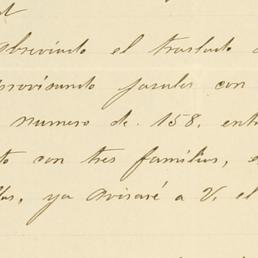 abreviando el traslado
provisando jacales con
numero de 158. ent
to con tres familias, e
llos, ya avisaré a V. el